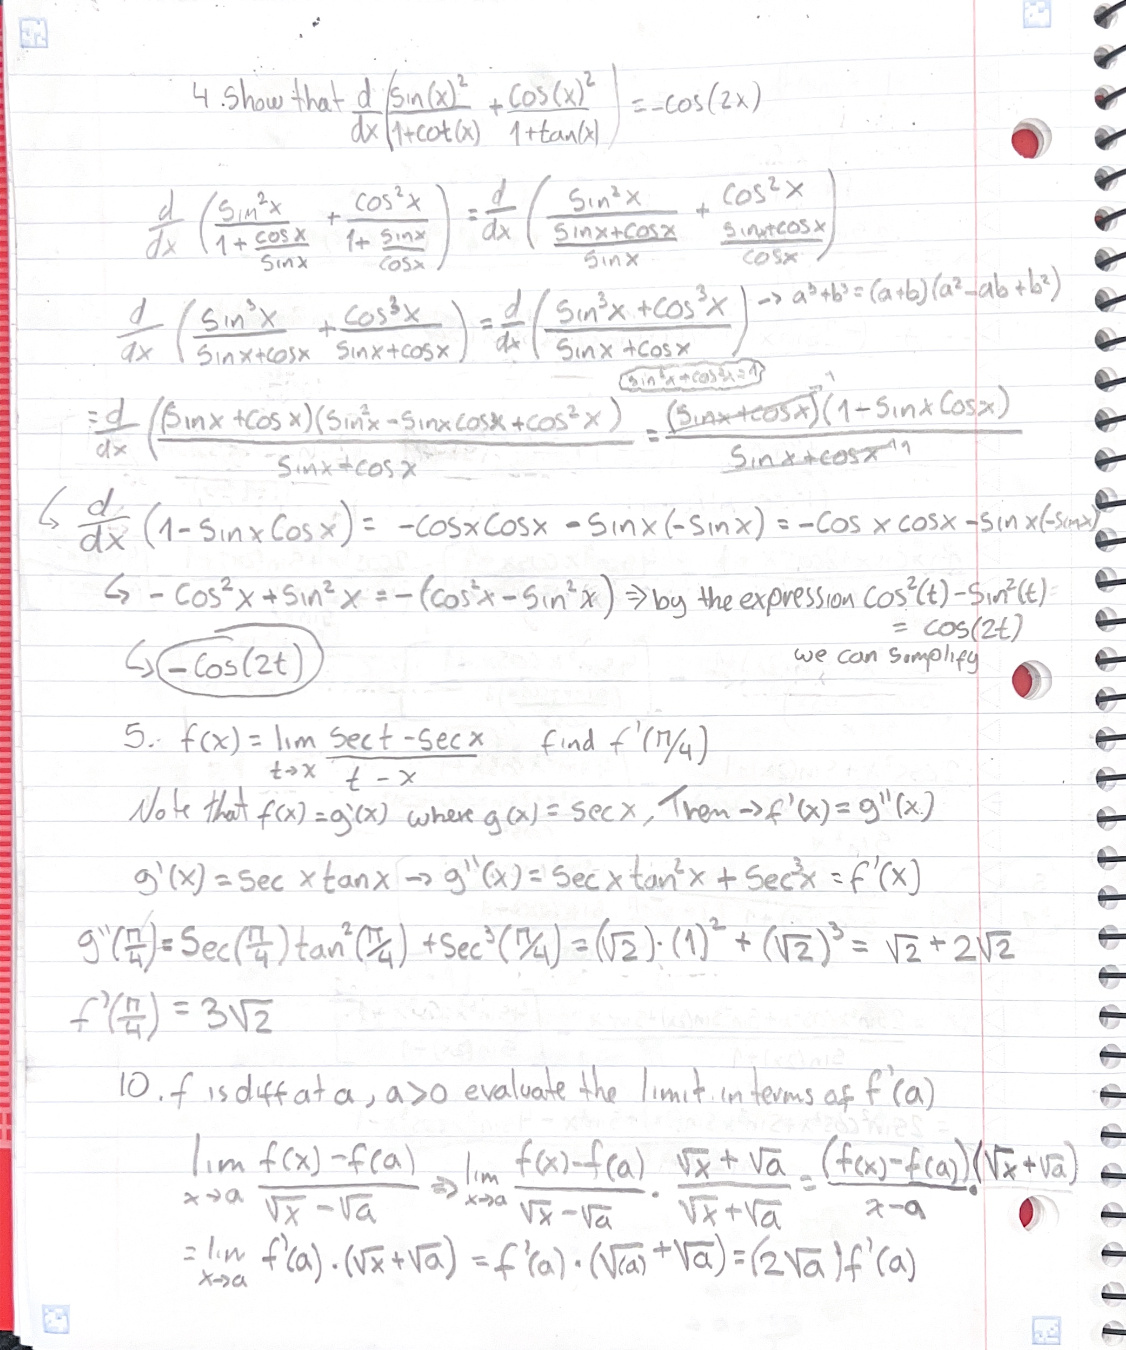 4. Show that d/dx (sin(x)²/(1+cot(x)) + cos(x)²/(1+tan(x))) = -cos(2x)
d/dx (sin²x/(1+cosx/sinx) + cos²x/(1+sinx/cosx)) = d/dx (sin²x/((sinx+cosx)/sinx) + cos²x/((sinx+cosx)/cosx))
d/dx (sin³x/(sinx+cosx) + cos³x/(sinx+cosx)) = d/dx ((sin³x+cos³x)/(sinx+cosx)) → a³+b³=(a+b)(a²-ab+b²)
sin²x+cos²x=1
= d/dx ((sinx+cosx)(sin²x-sinxcosx+cos²x)/(sinx+cosx)) = (sinx+cosx)¹(1-sinxcosx)/(sinx+cosx)¹
↳ d/dx (1-sinxcosx) = -cosxcosx - sinx(-sinx) = -cosxcosx-sinx(-sinx)
↳ -cos²x+sin²x = -(cos²x-sin²x) ⇒ by the expression cos²(t)-sin²(t)
= cos(2t)
we can simplify
↳ -cos(2t)
5. f(x) = lim t→x (sect-secx)/(t-x) find f'(π/4)
Note that f(x)=g'(x) where g(x)=secx, Then → f'(x)=g''(x)
g'(x)=secxtanx → g''(x)=secxtan²x+sec³x=f'(x)
g''(π/4)=sec(π/4)tan²(π/4)+sec³(π/4)=(√2)·(1)²+(√2)³=√2+2√2
f'(π/4)=3√2
10. f is diff at a, a>0 evaluate the limit in terms of f'(a)
lim x→a (f(x)-f(a))/(√x-√a) ⇒ lim x→a (f(x)-f(a))/(√x-√a) · (√x+√a)/(√x+√a) = (f(x)-f(a))/(x-a) · (√x+√a)
= lim x→a f'(a)·(√x+√a) = f'(a)·(√(a)+√a) = (2√a)f'(a)